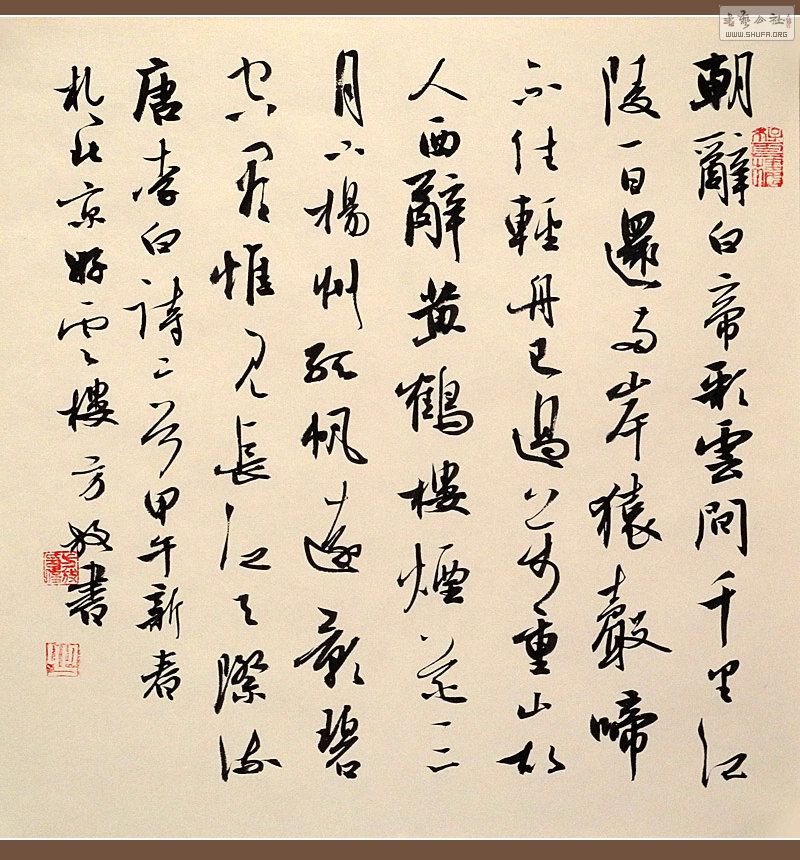 朝辭白帝彩雲間千里江
陵一日還兩岸猿聲啼
不住輕舟已過萬重山故
人西辭黃鶴樓煙花三
月下揚州孤帆遠影碧
空盡惟見長江天際流
唐李白詩二首甲午新春
於北京好雲樓方放書
書藝公社
WWW.SHUFA.ORG